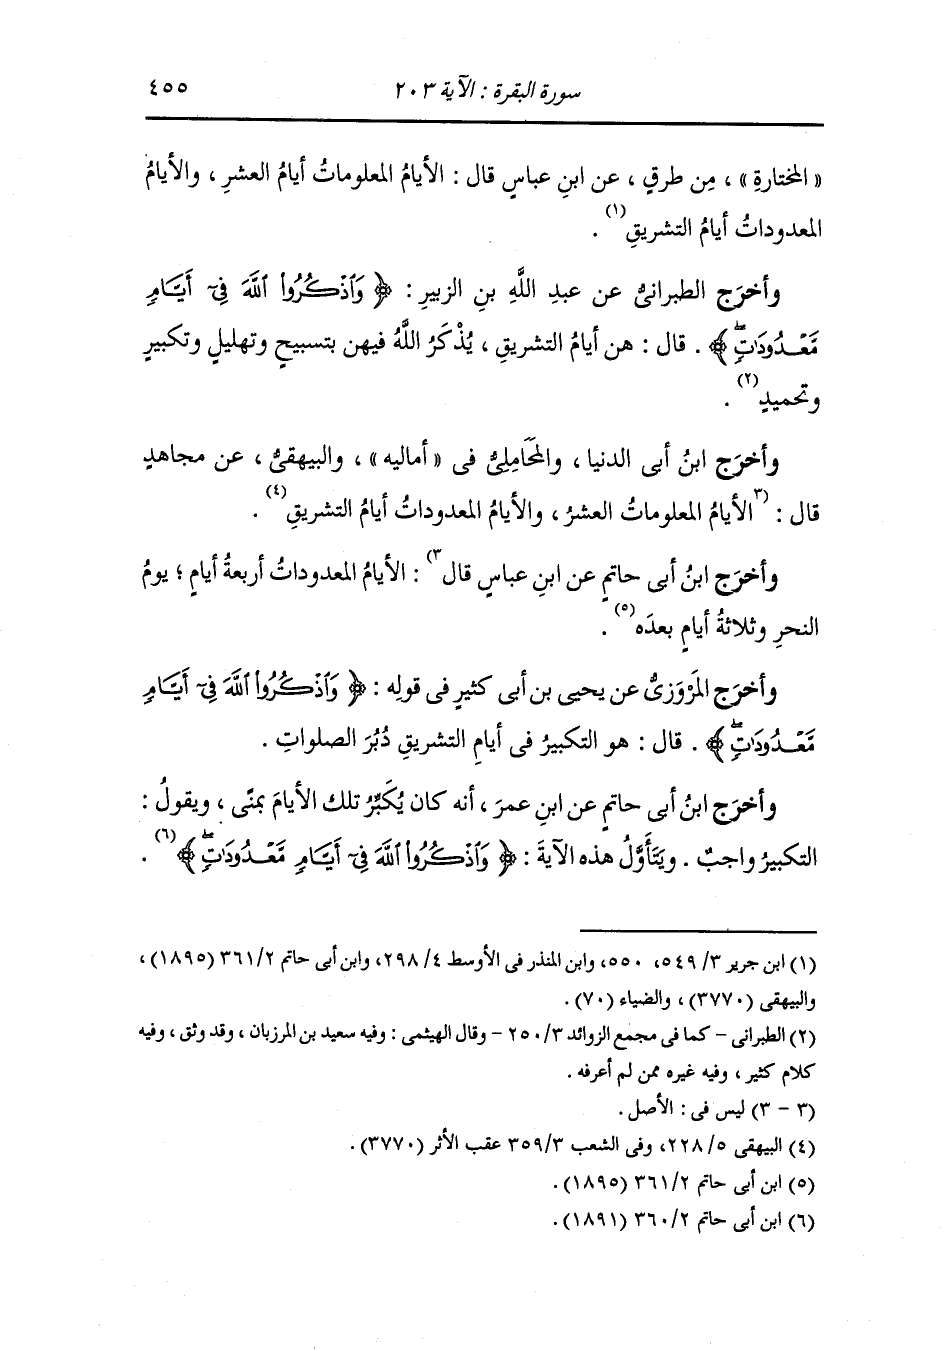 سورة البقرة : الآية ٢٠٣ ٤٥٥
« المختارةِ » ، مِن طرقٍ ، عن ابنِ عباسٍ قال : الأيامُ المعلوماتُ أيامُ العشرِ ، والأيامُ
المعدوداتُ أيامُ التشريقِ(١) .
وأخرَج الطبرانىُّ عن عبدِ اللَّهِ بنِ الزبيرِ : ﴿ وَٱذْكُرُوا۟ ٱللَّهَ فِىٓ أَيَّامٍ
مَّعْدُودَٰتٍۢ ﴾ . قال : هن أيامُ التشريقِ ، يُذْكَرُ اللَّهُ فيهن بتسبيحٍ وتهليلٍ وتكبيرٍ
وتحميدٍ(٢) .
وأخرَج ابنُ أبى الدنيا ، والمحَامِلِىُّ فى « أماليه » ، والبيهقىُّ ، عن مجاهدٍ
قال : (٣الأيامُ المعلوماتُ العشرُ ، والأيامُ المعدوداتُ أيامُ التشريقِ(٤) .
وأخرَج ابنُ أبى حاتمٍ عن ابنِ عباسٍ قال٣) : الأيامُ المعدوداتُ أربعةُ أيامٍ ؛ يومُ
النحرِ وثلاثةُ أيامٍ بعدَه(٥) .
وأخرَج المَرْوَزىُّ عن يحيى بن أبى كثيرٍ فى قولِه : ﴿ وَٱذْكُرُوا۟ ٱللَّهَ فِىٓ أَيَّامٍ
مَّعْدُودَٰتٍۢ ﴾ . قال : هو التكبيرُ فى أيامِ التشريقِ دُبُرَ الصلواتِ .
وأخرَج ابنُ أبى حاتمٍ عن ابنِ عمرَ ، أنه كان يُكَبِّرُ تلك الأيامَ بمنًى ، ويقولُ :
التكبيرُ واجبٌ . ويَتَأَوَّلُ هذه الآيةَ : ﴿ وَٱذْكُرُوا۟ ٱللَّهَ فِىٓ أَيَّامٍ مَّعْدُودَٰتٍۢ ﴾(٦) .
(١) ابن جرير ٣/ ٥٤٩، ٥٥٠، وابن المنذر فى الأوسط ٤/ ٢٩٨، وابن أبى حاتم ٢/ ٣٦١ (١٨٩٥) ،
والبيهقى (٣٧٧٠) ، والضياء (٧٠) .
(٢) الطبرانى - كما فى مجمع الزوائد ٣/ ٢٥٠ - وقال الهيثمى : وفيه سعيد بن المرزبان ، وقد وثق ، وفيه
كلام كثير ، وفيه غيره ممن لم أعرفه .
(٣ - ٣) ليس فى : الأصل .
(٤) البيهقى ٥/ ٢٢٨، وفى الشعب ٣/ ٣٥٩ عقب الأثر (٣٧٧٠) .
(٥) ابن أبى حاتم ٢/ ٣٦١ (١٨٩٥) .
(٦) ابن أبى حاتم ٢/ ٣٦٠ (١٨٩١) .